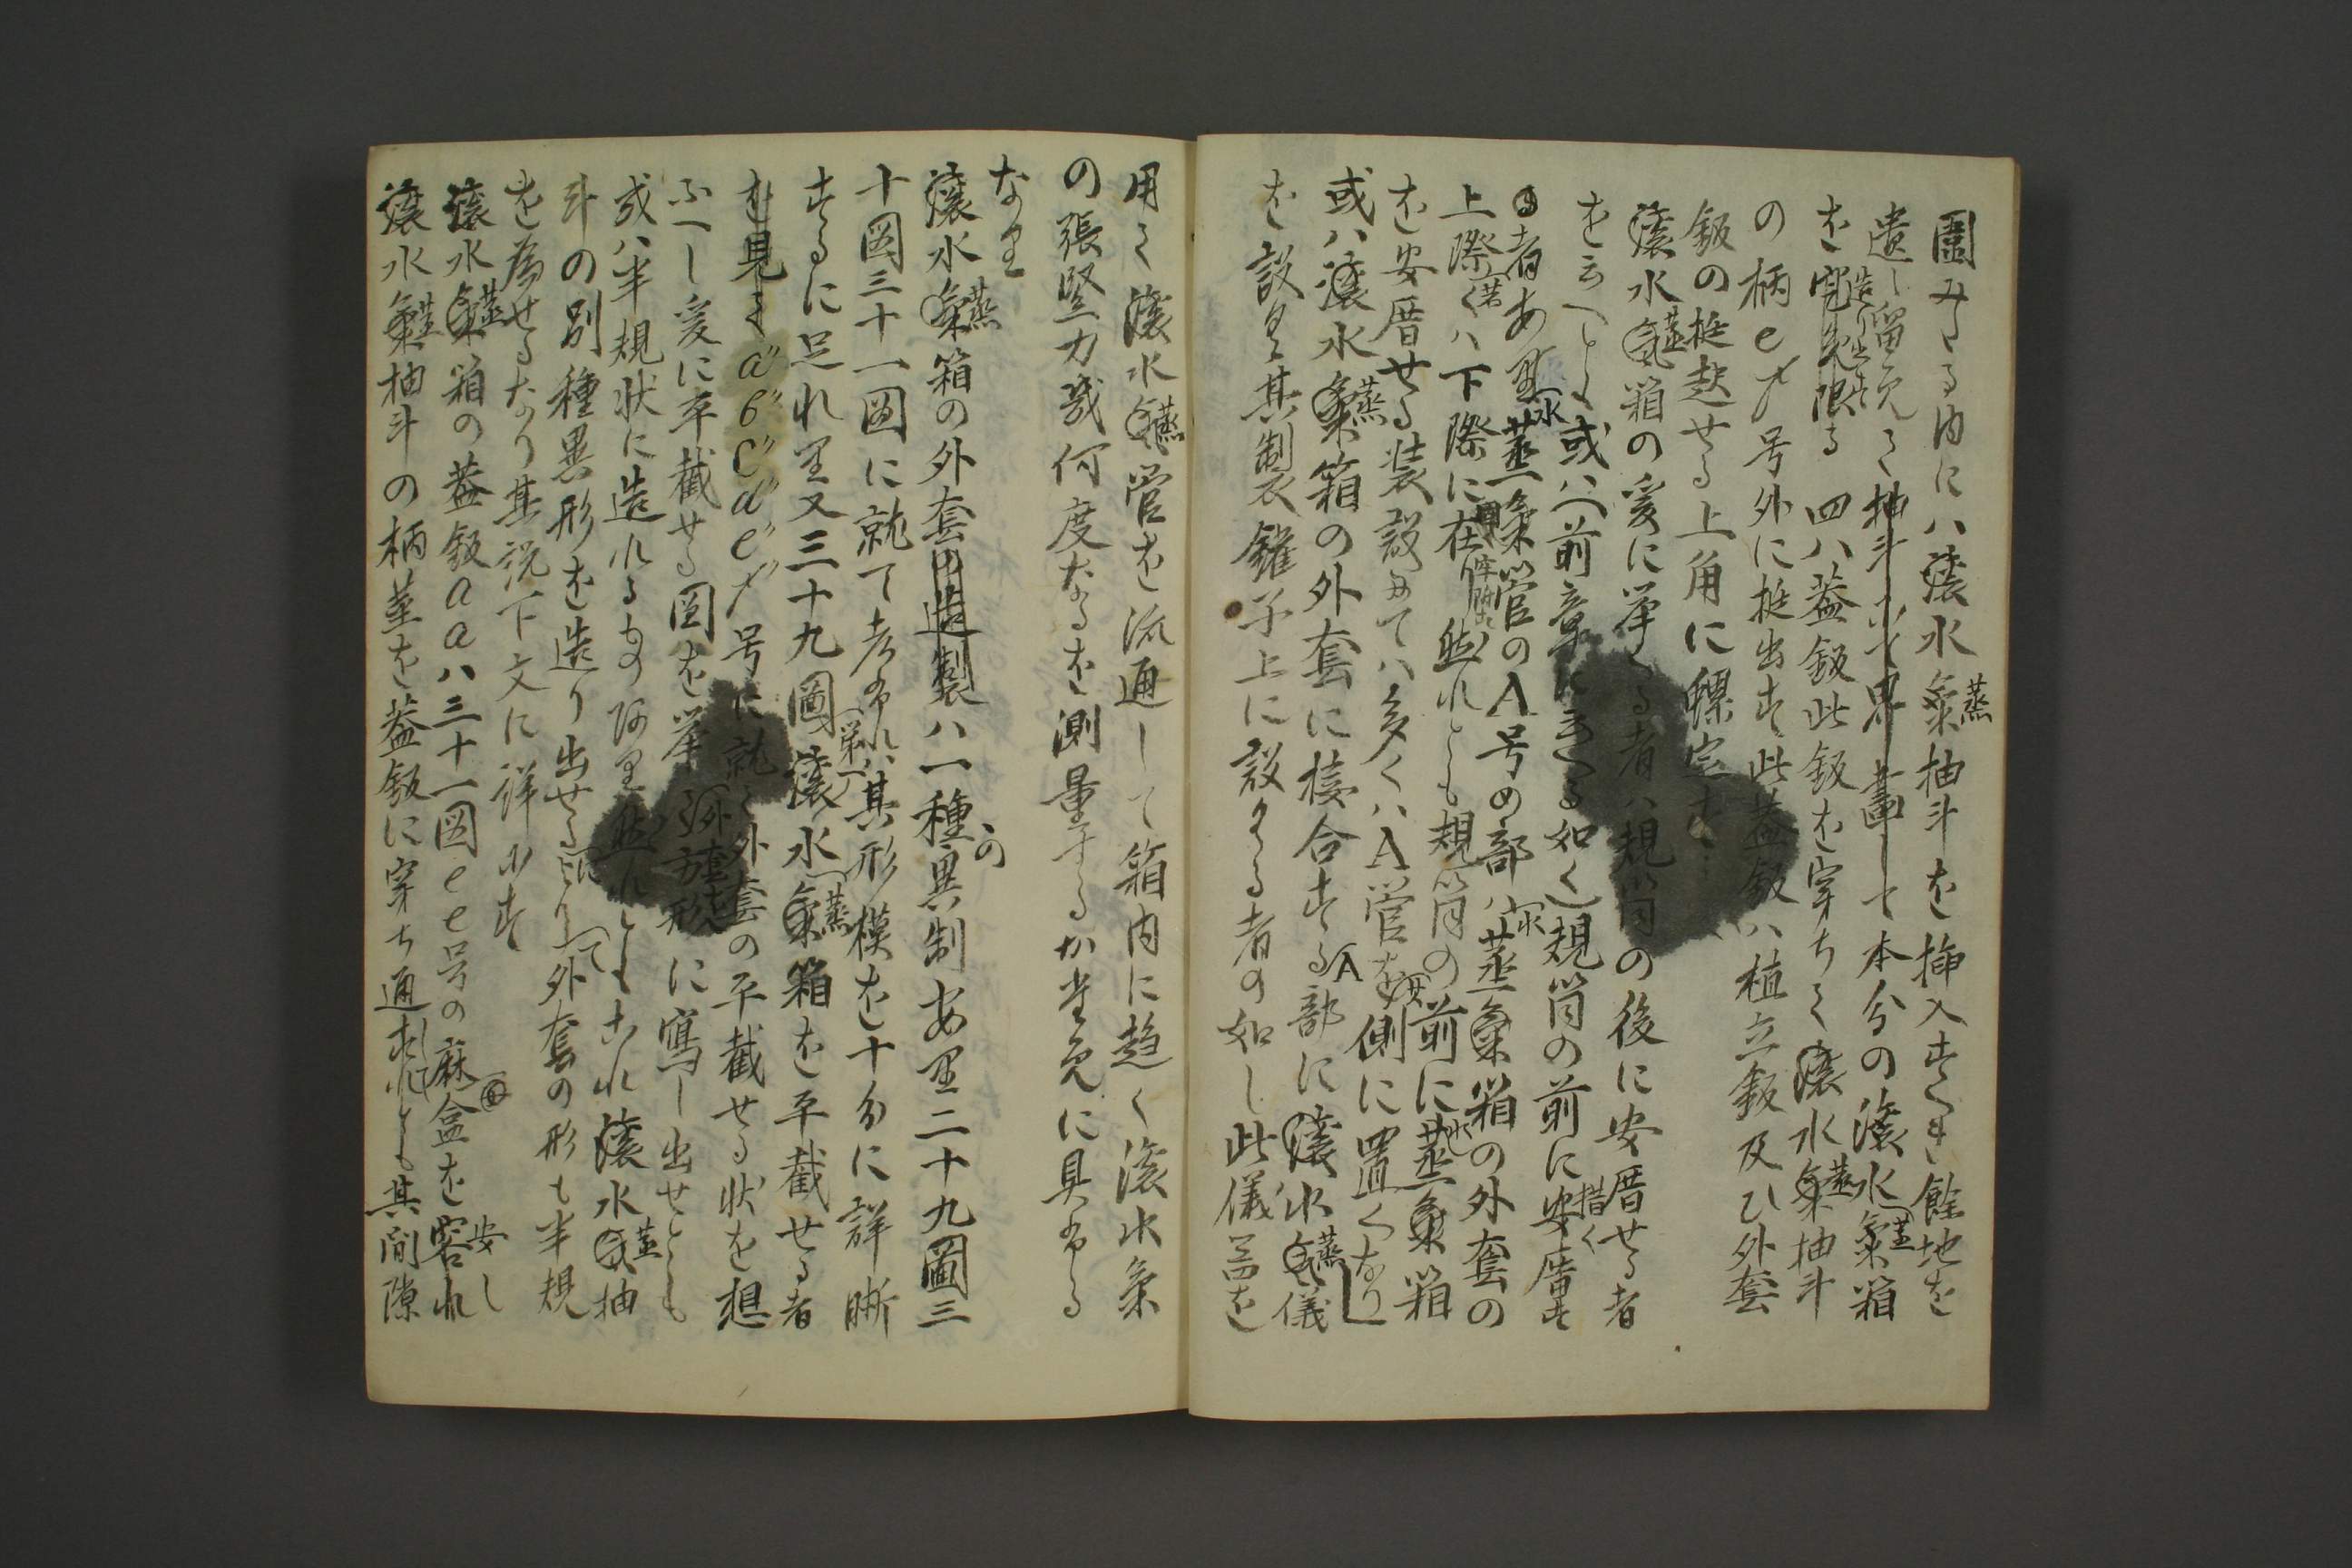 圍みたる内にハ滾水蒸氣抽斗を挿入すへき餘地を
遺し留免て抽斗本分の滾水蒸氣箱
を限る 四ハ蓋鈑此鈑を穿ちて滾水蒸氣抽斗
の柄ef号外に挺出す此蓋鈑ハ植立鈑及ひ外套
鈑の挺起せる上角に螺定す
滾水蒸氣箱の爰に挙くる者ハ規筒の後に安厝せる者
を云へとも或ハ前章に云へる如く規筒の前に安厝す
者あり水蒸氣管のA号の部ハ水蒸氣箱の外套の
上際若くハ下際に在 然れとも規筒の前に水蒸氣箱
を安厝せる装設にてハ多くハA管を側に置くなり
或ハ滾水蒸氣箱の外套に接合するA部に滾水蒸氣儀
を設く其製鑵子上に設くる者の如し此儀蓋を
用て滾水蒸氣管を流通して箱内に趋く滾水氣
の張堅力幾何度なるを測量するか為に具ふる
なり
滾水蒸氣箱の外套ハ一種の異制あり二十九圖三
十図三十一図に就て考ふれハ其形模を十分に詳晰
するに足れり又三十九圖滾水蒸氣箱を平截せる者
を見るa"b"c"d"e"f"号に就て外套の平截せる状を想
ふへし爰に平截せる図を挙 方形に寫し出せとも
或ハ半規状に造れるもの阿り然れともこれ滾水蒸氣抽
斗の別種異形を造り出せるにより外套の形も半規
を為せるなり其説下文に詳にす
滾水蒸氣箱の蓋鈑aaハ三十一図ee号の麻盒を容れ安し
滾水蒸氣抽斗の柄茎を蓋鈑に穿ち通すれとも其間隙